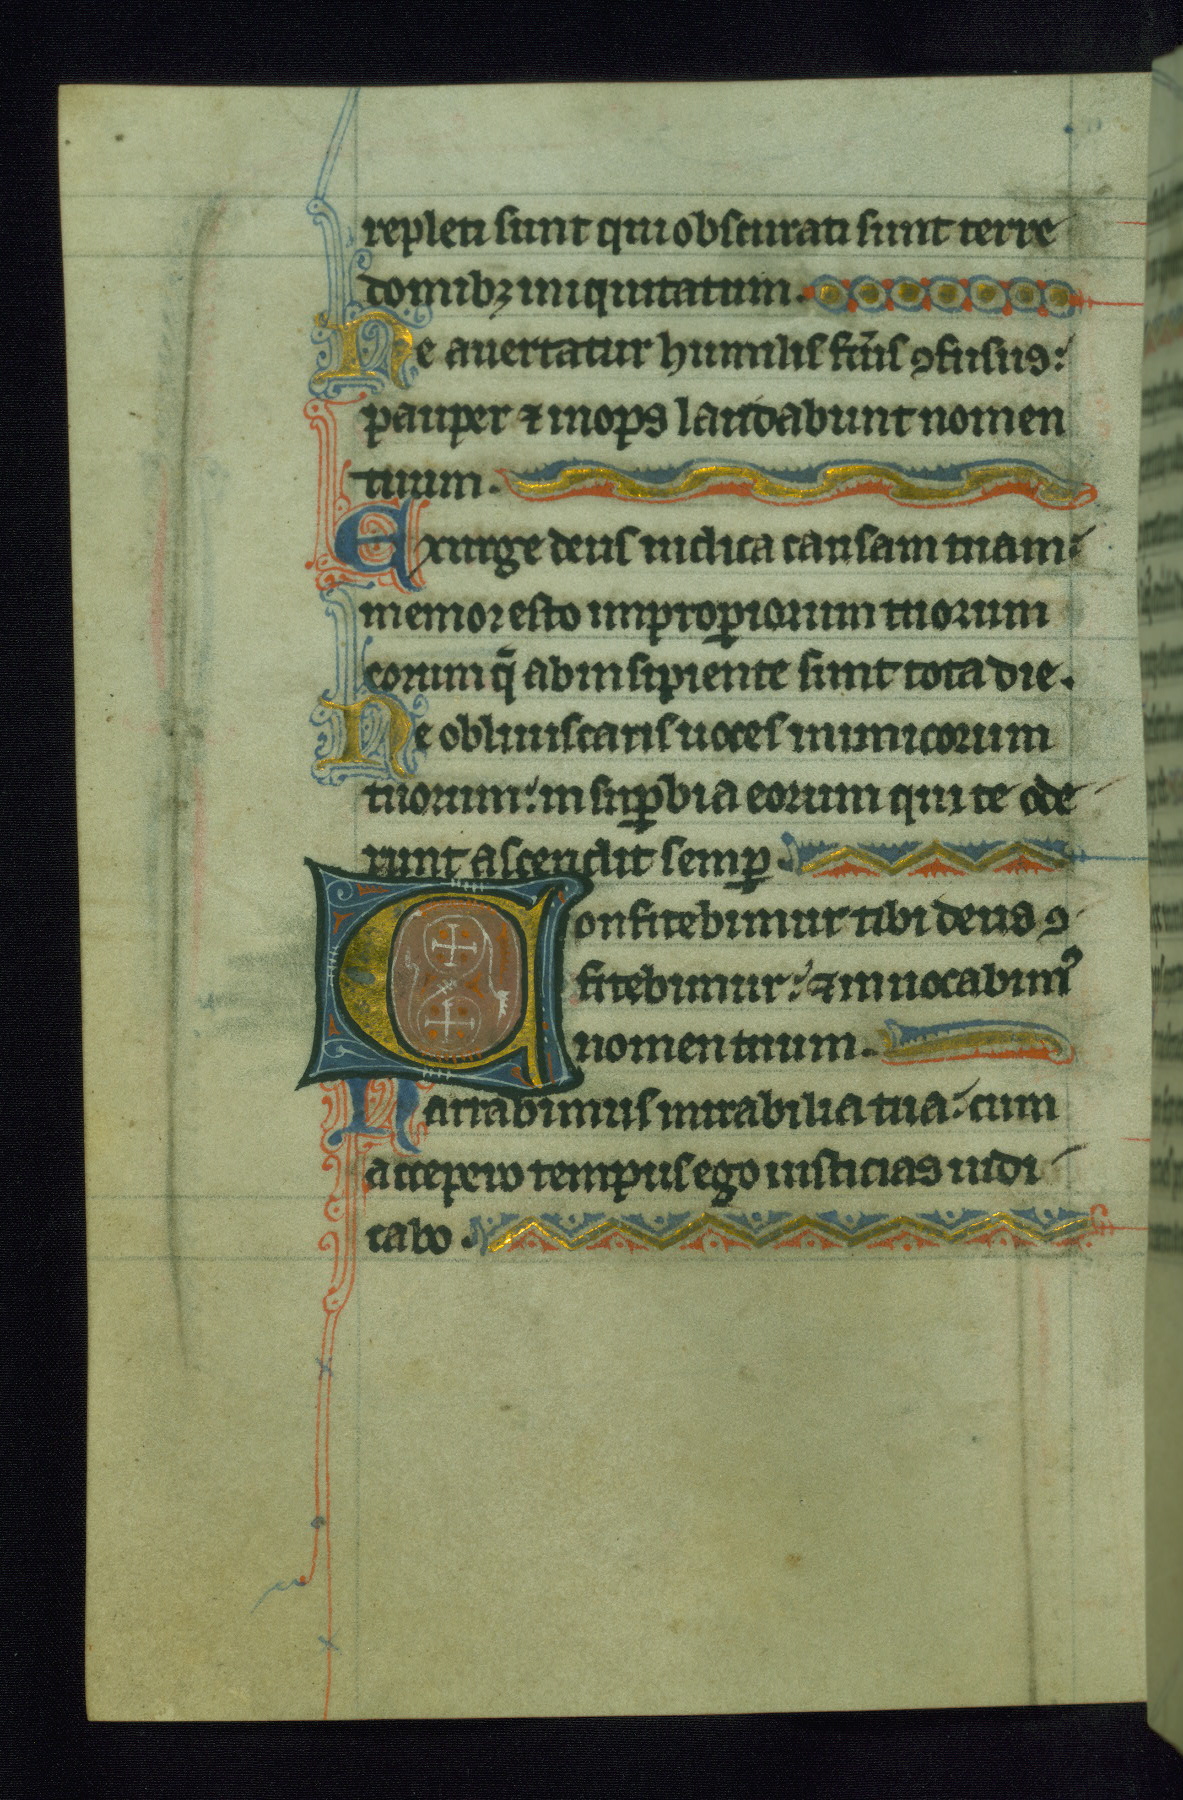 repleti sunt qui obscurati sunt terre
domibꝫ iniquitatum.
Ne auertatur humilis fcũs ꝯfusus:
pauper ⁊ inops laudabunt nomen
tuum.
Exurge deus iudica causam tuam:
memor esto improꝑiorum tuorum
eorum q̃ ab insipiente sunt tota die.
Ne obliuiscaris uoces inimicorum
tuorum: in suꝑbia eorum qui te ode
runt ascendit semꝑ.
Confitebimur tibi deus ꝯ
fitebimur: ⁊ inuocabimꝰ
nomen tuum.
Narrabimus mirabilia tua: cum
accepero tempus ego iusticias iudi
cabo.